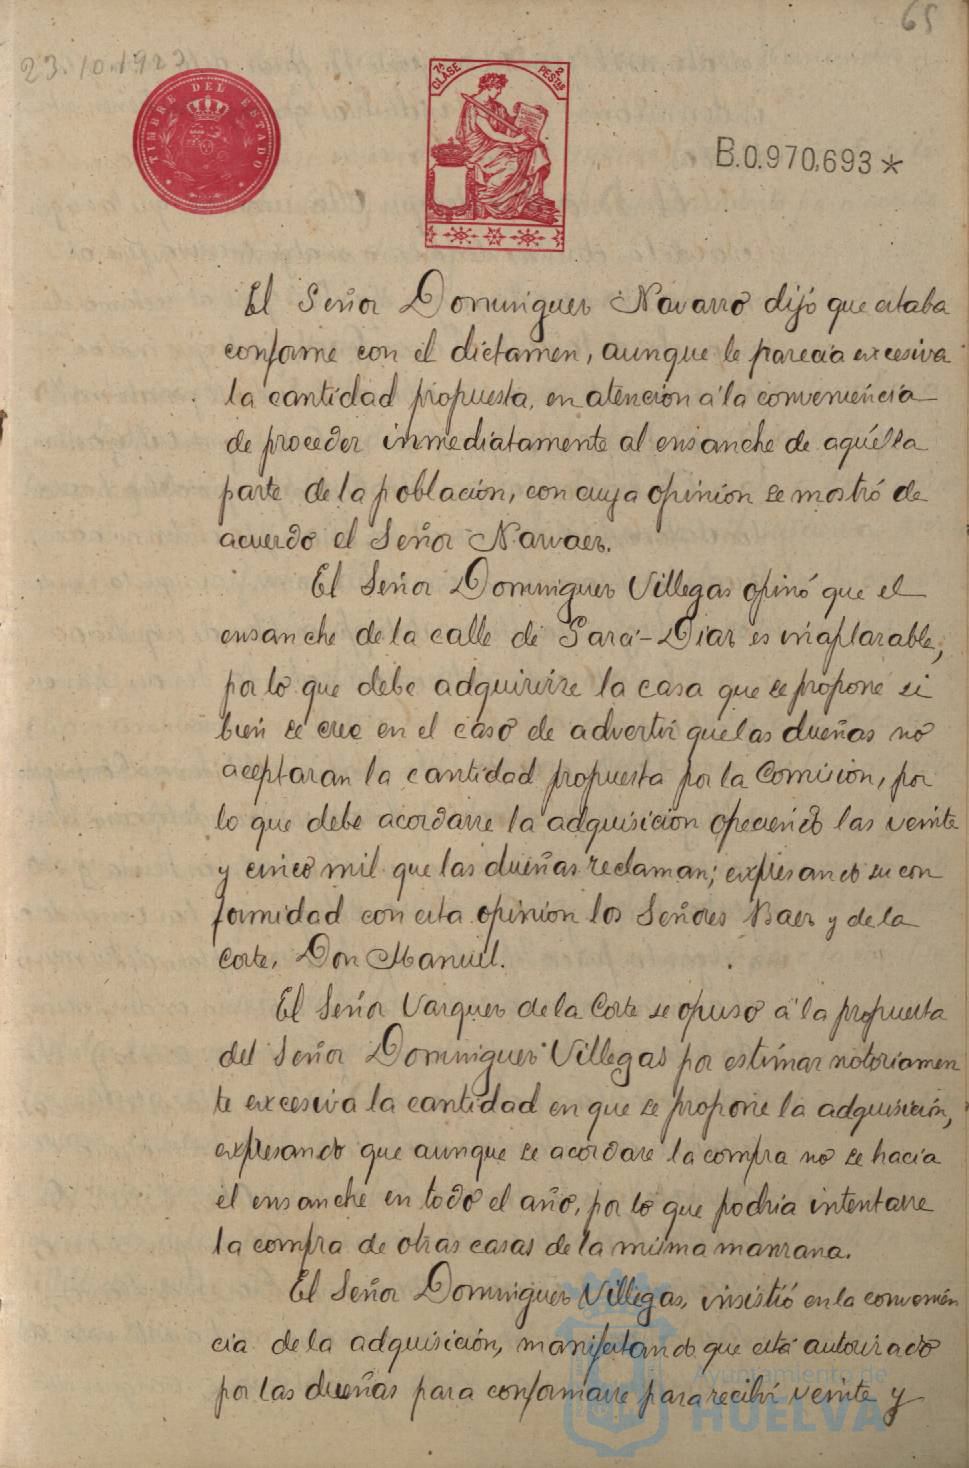 65
23.10.1923
TIMBRE DEL ESTADO
7ª CLASE
2 PESTAS
B.0.970,693*
El Señor Dominguez Navarro dijó que estaba
conforme con el dictamen, aunque le parecia excesiva
la cantidad propuesta, en atención á la conveniencia
de proceder inmediatamente al ensanche de aquélla
parte de la población, con cuya opinión se mostró de
acuerdo el Señor Narvaez.
El Señor Dominguez Villegas opinó que el
ensanche de la calle de Garci-Diaz es inaplazable,
por lo que debe adquirirse la casa que se propone si
bien se cree en el caso de advertir que las dueñas no
aceptaran la cantidad propuesta por la Comision, por
lo que debe acordarse la adquisicion ofreciendo las veinte
y cinco mil que las dueñas reclaman; expresando su con
formidad con esta opinion los Señores Baez y de la
Corte, Don Manuel.
El Señor Vazquez de la Corte se opuso á la propuesta
del Señor Dominguez Villegas por estimar notoriamen
te excesiva la cantidad en que se propone la adquisición,
expresando que aunque se acordase la compra no se hacia
el ensanche en todo el año, por lo que podria intentarse
la compra de otras casas de la misma manzana.
El Señor Dominguez Villegas, insistió en la convenien
cia de la adquisición, manifestando que está autorizado
por las dueñas para conformarse para recibir veinte y
Ayuntamiento de
HUELVA